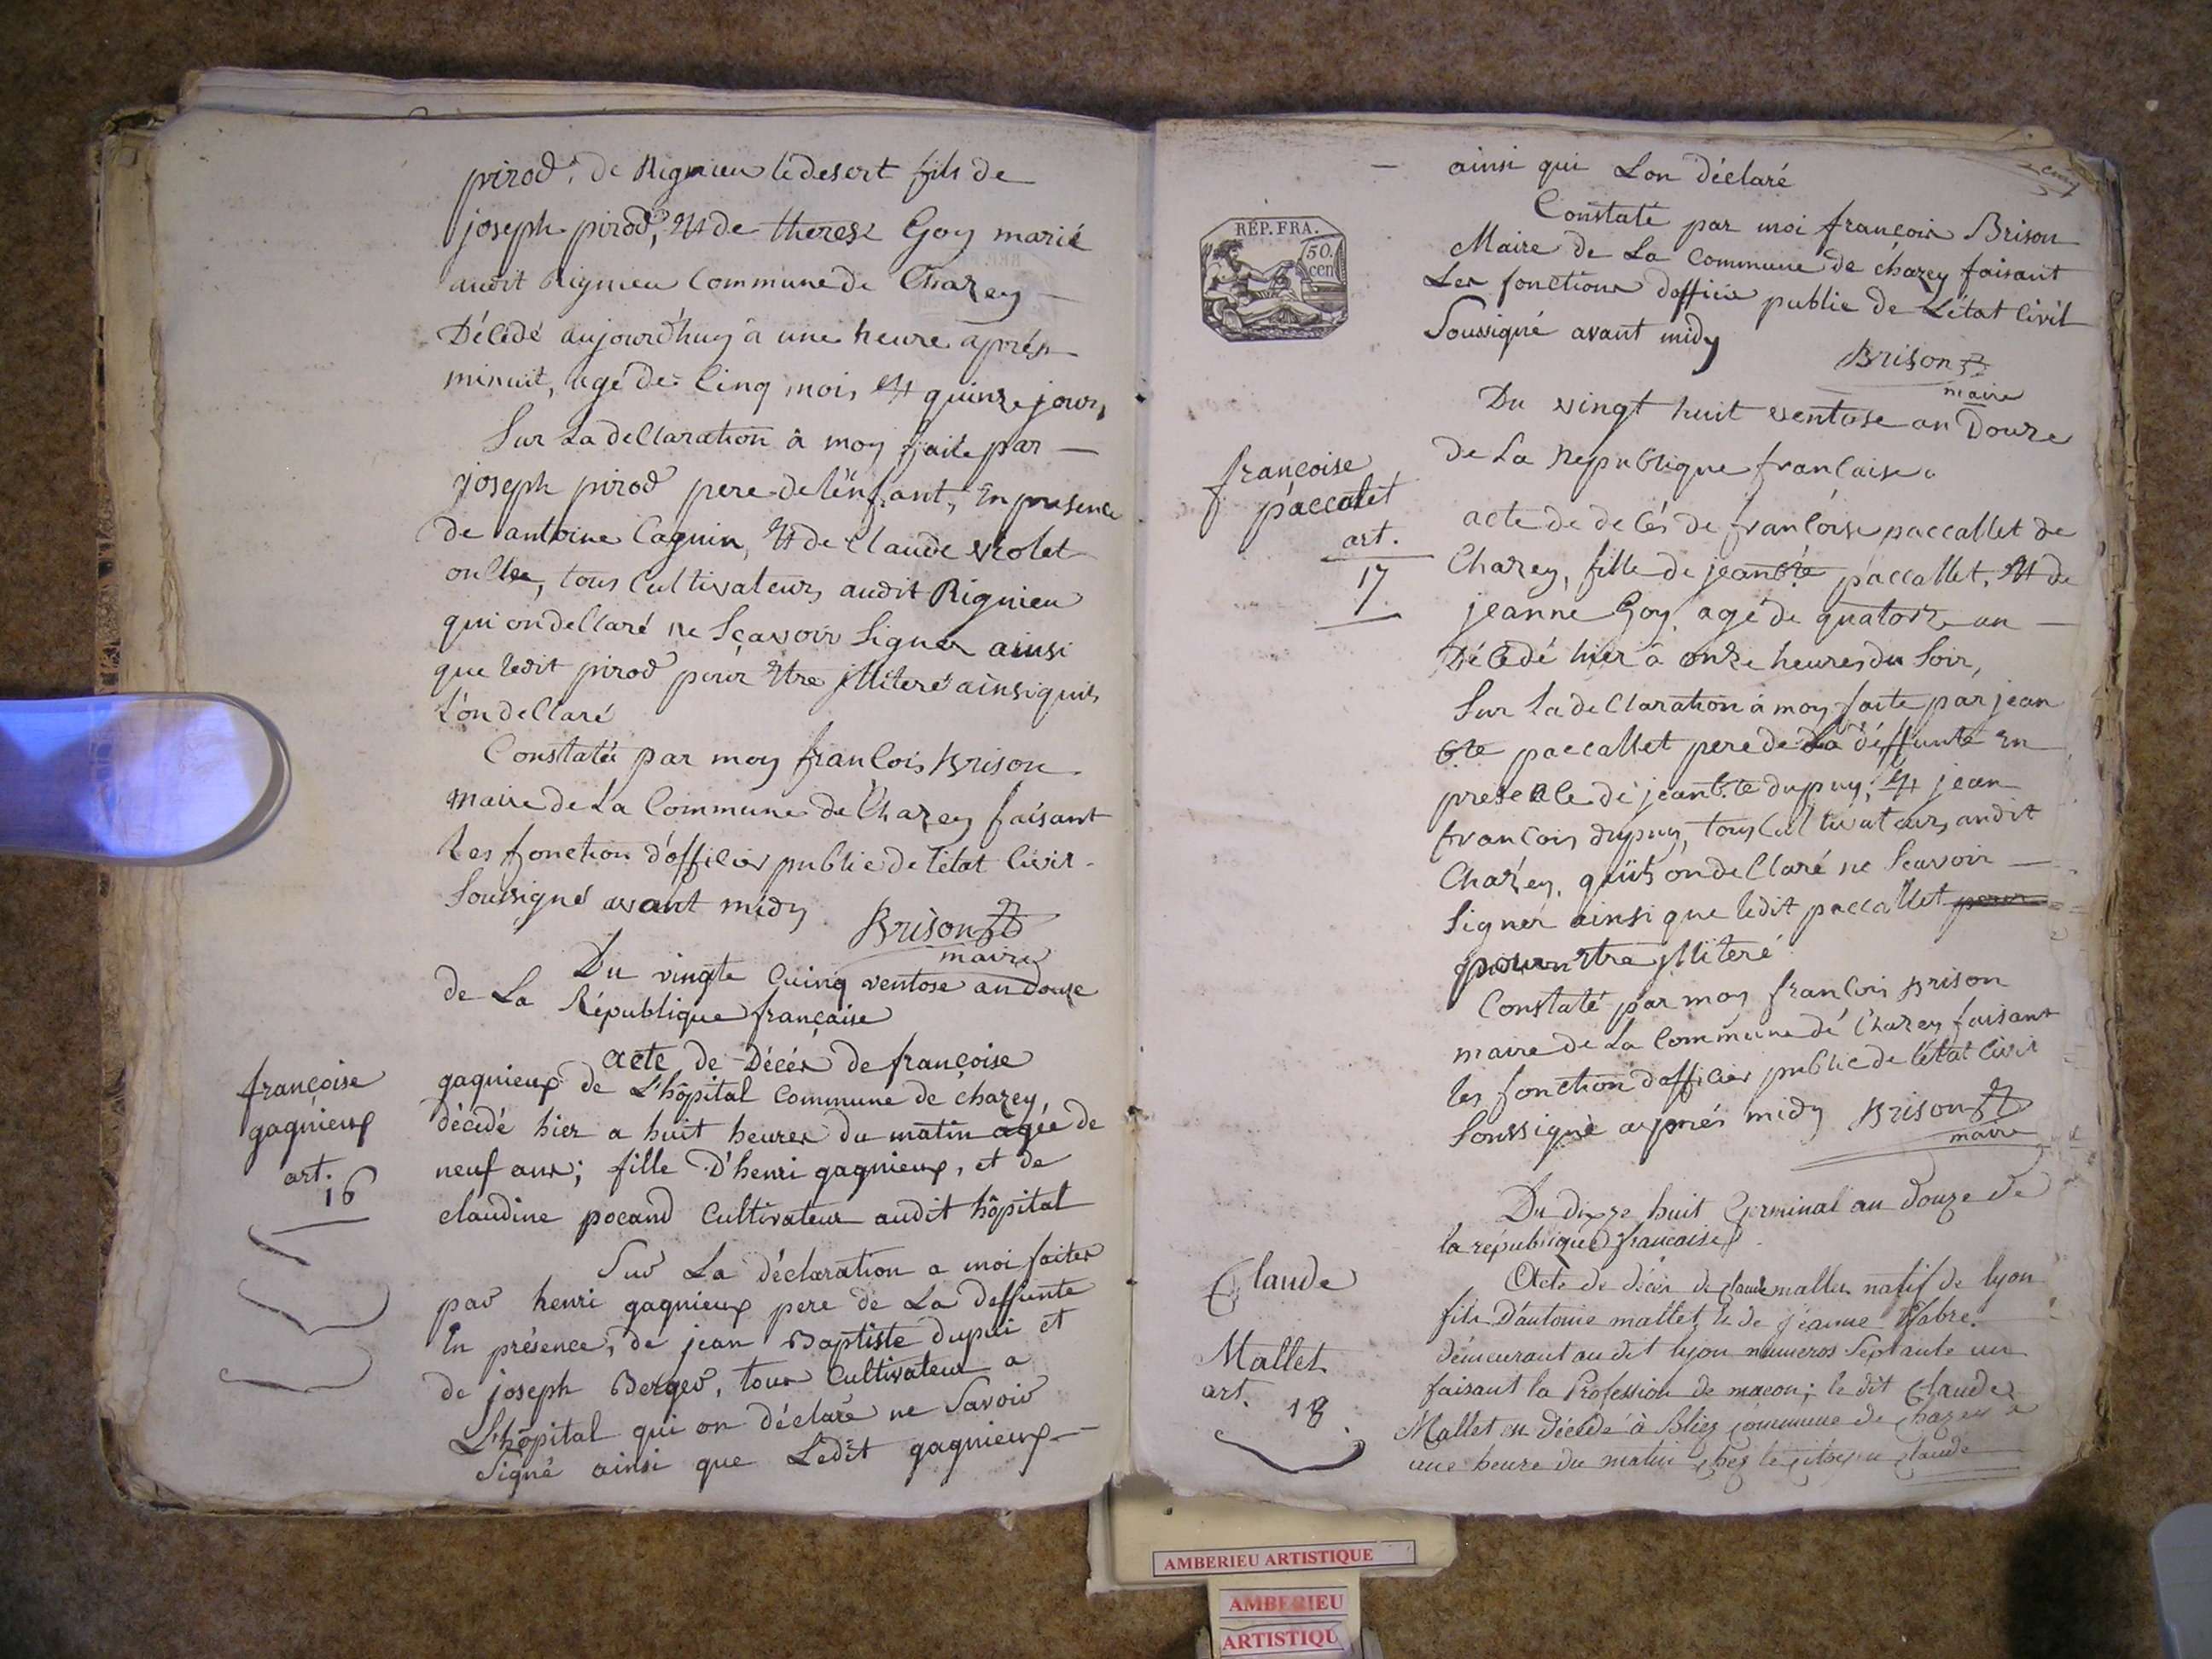 pirod, de Rignieu ledesert fils de
joseph pirod, Et de therese Goy marié
audit Rignieu Commune de Chazey
Décedé aujourd'huy à une heure aprés
minuit, agé de Cinq mois Et quinze jours
Sur La deClaration à moy faite par
joseph pirod pere de lénfant, En presence
de antoine Cagnin, Et de Claude violet
oncle, tous Cultivateurs audit Rignieu
qui on deClaré ne Sçavoir Signer ainsi
que ledit pirod pour Etre jlliteré ainsi quils
L'on deClaré
Constaté par moy franCois Brison
maire de La Commune de Chazey faisant
les fonction d'offiCier public de l'état Civil
Soussigné avant midy
Brison
maire
Du vingte Cuinq ventose an douze
de La République française
acte de Décés de françoise
gagnieux de L'hôpital Commune de chazey,
décédé hier a huit heures du matin agée de
neuf ans; fille D'henri gagnieux, et de
claudine pocand Cultivateur audit hôpital
Sur La déclaration a moi faites
par henri gagnieux pere de La deffunte
En présence, de jean Baptiste dupui et
de joseph Berger, tous Cultivateur a
L'hôpital qui on déclaré ne Savoir
Signé ainsi que Ledit gagnieux
françoise
gagnieux
art.
16
ainsi qui Lon déclaré
Constaté par moi françois Brison
Maire de La Commune de chazey faisant
Les fonctions dofficier public de L'état Civil
Soussigné avant midy
Brison
maire
RÉP. FRA.
50.
cen
Du vingt huit ventose an Douze
de La Republique franCaise
françoise
paccalet
art.
17
acte de deCés de franCoise paccallet de
Chazey, fille de jean bte paccallet, Et de
jeanne Goy, agé de quatorze an
DéCedé hier à onze heures du Soir,
Sur la deClaration à moy faite par jean
bte paccallet pere de La déffunte En
presenCe de jean bte dupuy, Et jean
francois dupuy, tous Cultivateurs audit
Chazey, quils on deClaré ne Scavoir
Signer ainsi que ledit paccallet pour
pour Etre jlliteré
Constaté par moy franCois Brison
maire de La Commune de Chazey faisant
les fonction d'offiCier public de l'état Civil
Soussigné aprés midy
Brison
maire
Du dixze huit Germinal an douze de
la republique francaise
Claude
Mallet
art. 18
Acte de décés de Claude mallet natif de lyon
fils D'antoine mallet, & de jeanne
demeurant au dit lyon numeros Septante un
faisant la Profession de macon; le dit Claude
Mallet est décédé à Bliez commune de Chazey a
une heure du matin chez le citoyen Claude
AMBERIEU ARTISTIQUE
AMBERIEU
ARTISTIQU